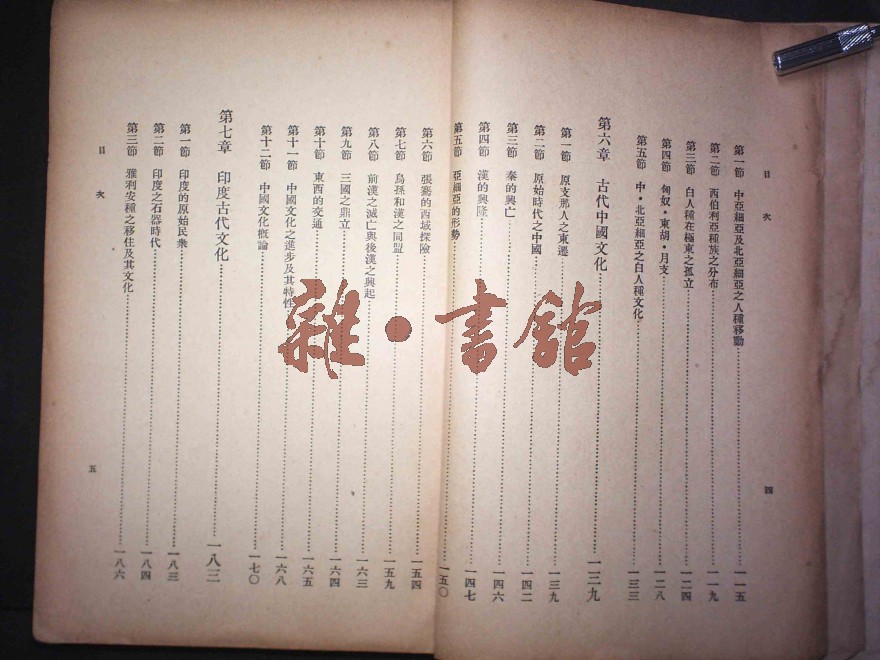 目次
第一節　中亞細亞及北亞細亞之人種移動…………一一五
第二節　西伯利亞種族之分布…………一一九
第三節　白人種在極東之孤立…………一二四
第四節　匈奴・東胡・月支…………一二八
第五節　中・北亞細亞之白人種文化…………一三三
第六章　古代中國文化…………一三九
第一節　原支那人之東遷…………一三九
第二節　原始時代之中國…………一四二
第三節　秦的興亡…………一四六
第四節　漢的興隆…………一四七
四
第五節　亞細亞的形勢…………一五〇
第六節　張騫的西域探險…………一五四
第七節　烏孫和漢之同盟…………一五九
第八節　前漢之滅亡與後漢之興起…………一六三
第九節　三國之鼎立…………一六四
第十節　東西的交通…………一六五
第十一節　中國文化之進步及其特性…………一六八
第十二節　中國文化概論…………一七〇
第七章　印度古代文化…………一八三
第一節　印度的原始民衆…………一八三
第二節　印度之石器時代…………一八四
第三節　雅利安種之移住及其文化…………一八六
目次
五
雜・書館